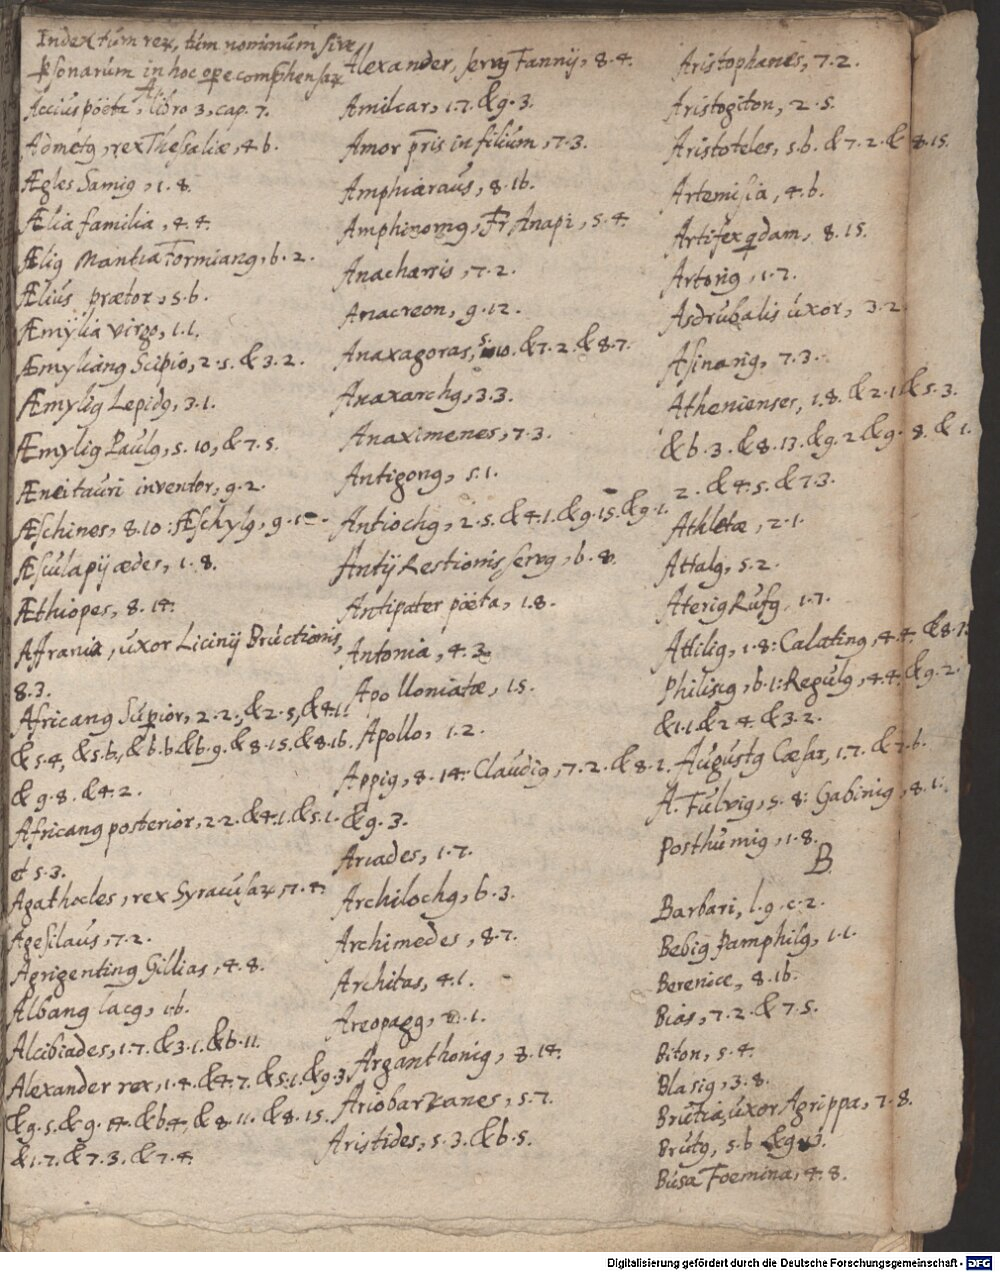 Index tùm rerũ, tùm nominũm sive
psonarũm in hoc ope comphensarũ
A.
Accius pöeta, libro 3, cap. 7.
Admetꝰ, rex Thessaliæ, 4.6.
Ægles Samiꝰ, 1.8.
Ælia familia, 4.4.
Æliꝰ Mantia Formianꝰ, 6.2.
Æliùs prætor, 5.6.
Æmÿlia virgo, 1.1.
Æmylianꝰ Scipio, 2.5. & 3.2.
Æmyliꝰ Lepidꝰ, 3.1.
Æmyliꝰ Paulꝰ, 5.10, & 7.5.
Ænei tauri inventor, 9.2.
Æschines, 8.10: Æschylꝰ, 9.
Æsculapij ædes, 1.8.
Æthiopes, 8.14.
Affrania, uxor Licinij Bructionis,
8.3.
Africanꝰ Supior, 2.2, & 2.5, & 4.1.
& 5.4, & 5.6, & 6.6. & 6.9. & 8.15. & 8.16.
& 9.8. & 4.2.
Africanꝰ posterior, 2.2. & 4.1. & 5.1.
et 5.3.
Agathocles, rex Syracusarũ, 7.4.
Agesilaùs, 7.2.
Agrigentinꝰ Gillias, 4.8.
Albanꝰ lacꝰ, 1.6.
Alcibiades, 1.7. & 3.1. & 6.11.
Alexander rex, 1.4. & 4.7. & 5.1. & 9.3.
& 9.5. & 9.14. & 6.4, & 8.11. & 8.15.
& 1.7. & 7.3. & 7.4.
Alexander, servꝰ Fannij, 8.4.
Amilcar, 1.7. & 9.3.
Amor pris in filium, 7.3.
Amphiaraùs, 8.16.
Amphinomꝰ, Fr Anapi, 5.4.
Anacharsis, 7.2.
Anacreon, 9.12.
Anaxagoras, 5.10. & 7.2. & 8.7.
Anaxarchꝰ, 3.3.
Anaximenes, 7.3.
Antigonꝰ, 5.1.
Antiochꝰ, 2.5. & 4.1. & 9.15. & 9.1.
Antij Restionis servꝰ, 6.8.
Antipater pöeta, 1.8.
Antonia, 4.3.
Apolloniatæ, 1.5.
Apollo, 1.2.
Appiꝰ, 8.14: Claùdiꝰ, 7.2. & 8.1.
& 9.3.
Arcades, 1.7.
Archilochꝰ, 6.3.
Archimedes, 8.7.
Architas, 4.1.
Areopagꝰ, 8.1.
Arganthoniꝰ, 8.14.
Ariobarzanes, 5.7.
Aristides, 5.3. & 6.5.
Aristophanes, 7.2.
Aristogiton, 2.5.
Aristoteles, 5.6. & 7.2. & 8.15.
Artemisia, 4.6.
Artifex qdam, 8.15.
Artoriꝰ, 1.7.
Asdrubalis ùxor, 3.2.
Asinariꝰ, 7.3.
Athenienses, 1.8. & 2.1. & 5.3.
& 6.3. & 8.13. & 9.2 & 9.8. & 1.
2. & 4.5. & 7.3.
Athletæ, 2.1.
Attalꝰ, 5.2.
Ateriꝰ Rufꝰ, 1.7.
Attiliꝰ, 1.8: Calatinꝰ, 4.4. & 8.1:
Philiscꝰ, 6.1: Regulꝰ, 4.4. & 9.2.
& 1.1. & 2.4. & 3.2.
Augustꝰ Cæsar, 1.7. & 7.6.
A. Fulviꝰ, 5.8: Gabiniꝰ, 8.1:
Posthùmiꝰ, 1.8.
B.
Barbari, l.9.c.2.
Bebiꝰ Pamphilꝰ, 1.1.
Berenice, 8.16.
Bias, 7.2. & 7.5.
Biton, 5.4.
Blasiꝰ, 3.8.
Brùtia, ùxor Agrippa, 7.8.
Brùtꝰ, 5.6
Busa Foemina, 4.8.
Digitalisierung gefördert durch die Deutsche Forschungsgemeinschaft - DFG